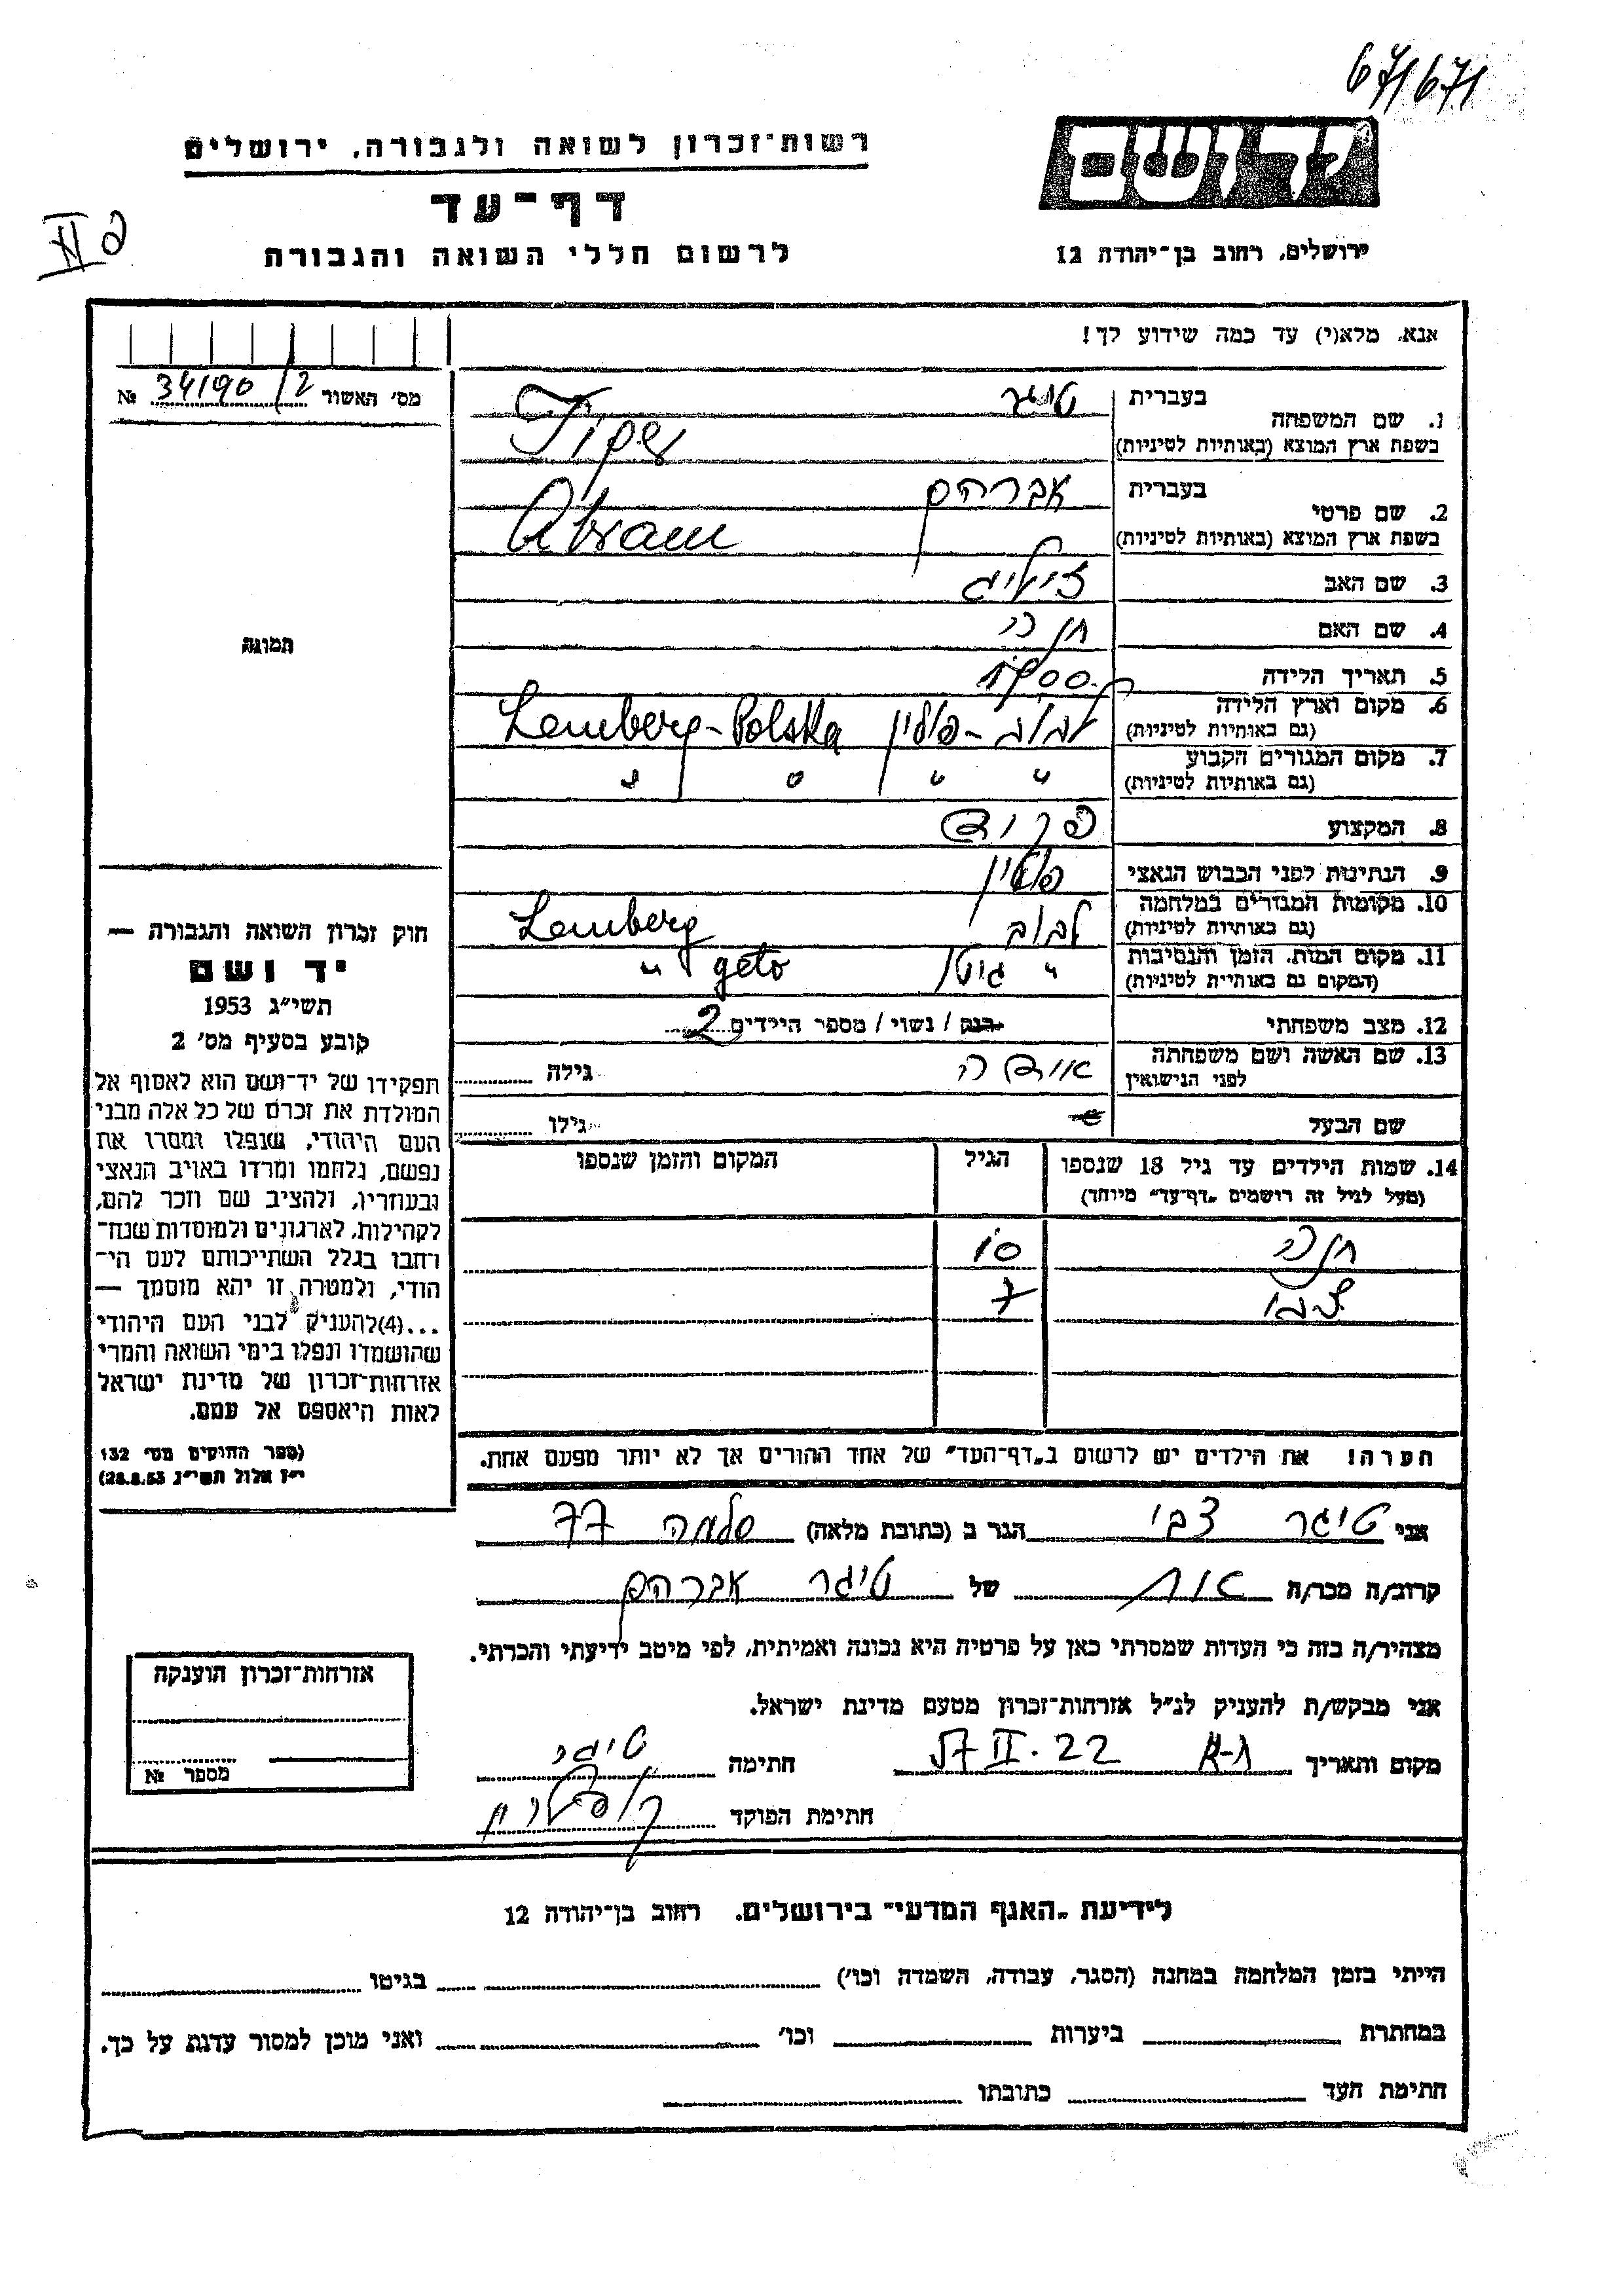 671671
יד ושם
ירושלים, רחוב בן־יהודה 12
רשות־זכרון לשואה ולגבורה, ירושלים
דף־עד
לרשום חללי השואה והגבורה
אנא, מלא(י) עד כמה שידוע לך!
מס׳ האשור 34190/2 №
תמונה
1. שם המשפחה בעברית טיגר
בשפת ארץ המוצא (באותיות לטיניות)
2. שם פרטי בעברית אברהם
בשפת ארץ המוצא (באותיות לטיניות) Abram
3. שם האב זיליג
4. שם האם חנה
5. תאריך הלידה 1900
6. מקום וארץ הלידה לבוב - פולין Lemberg - Polska
(גם באותיות לטיניות)
7. מקום המגורים הקבוע " " " "
(גם באותיות לטיניות)
8. המקצוע
9. הנתינות לפני הכבוש הנאצי פולין
10. מקומות המגורים במלחמה לבוב Lemberg
(גם באותיות לטיניות)
11. מקום המות, הזמן והנסיבות " גיטו " geto
(המקום גם באותיית לטיניות)
12. מצב משפחתי רנק / נשוי / מספר הילדים 2
13. שם האשה ושם משפחתה גילה
לפני הנישואין
שם הבעל גילו
14. שמות הילדים עד גיל 18 שנספו הגיל המקום והזמן שנספו
(מעל לגיל זה רושמים „דף־עד״ מיוחד)
חנה 10
צבי 7
הערה! את הילדים יש לרשום ב„דף־העד״ של אחד ההורים אך לא יותר מפעם אחת.
חוק זכרון השואה והגבורה —
יד ושם
תשי״ג 1953
קובע בסעיף מס׳ 2
תפקידו של יד־ושם הוא לאסוף אל
המולדת את זכרם של כל אלה מבני
העם היהודי, שנפלו ומסרו את
נפשם, נלחמו ומרדו באויב הנאצי
ובעוזריו, ולהציב שם וזכר להם,
לקהילות, לארגונים ולמוסדות שנח־
רחבו בגלל השתייכותם לעם הי־
הודי, ולמטרה זו יהא מוסמך —
...(4)להעניק לבני העם היהודי
שהושמדו ונפלו בימי השואה והמרי
אזרחות־זכרון של מדינת ישראל
לאות היאספם אל עמם.
(ספר החוקים מס׳ 132
י״ז אלול תשי״ג 28.8.53)
אני טיגר צבי הגר ב (כתובת מלאה) שלמה 77
קרוב/ה מכר/ה אח של טיגר אברהם
מצהיר/ה בזה כי העדות שמסרתי כאן על פרטיה היא נכונה ואמיתית, לפי מיטב ידיעתי והכרתי.
אני מבקש/ת להעניק לנ״ל אזרחות־זכרון מטעם מדינת ישראל.
מקום ותאריך ת-א 22.II 57 חתימה טיגר
חתימת הפוקד
אזרחות־זכרון הוענקה
מספר №
לידיעת „האגף המדעי״ בירושלים, רחוב בן־יהודה 12
הייתי בזמן המלחמה במחנה (הסגר, עבודה, השמדה וכו׳) בגיטו
במחתרת ביערות וכו׳ ואני מוכן למסור עדות על כך.
חתימת העד כתובתו